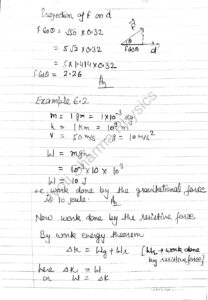 Projection of F on d
F cos θ = √50 × 0.32
= 5√2 × 0.32
= 5 × 1.414 × 0.32
F cos θ = 2.26
Example 6.2
m = 1 gm = 1×10⁻³ kg
h = 1 km = 10³ m
v = 50 m/s g = 10 m/s²
W = mgh
= 10⁻³ × 10 × 10³
W = 10 J
work done by the gravitational force
is 10 joule.
Now work done by the resistive force.
By work energy theorem
Δk = Wg + Wr [Wr → work done
by resistive force]
here Δk = W
or W = Δk